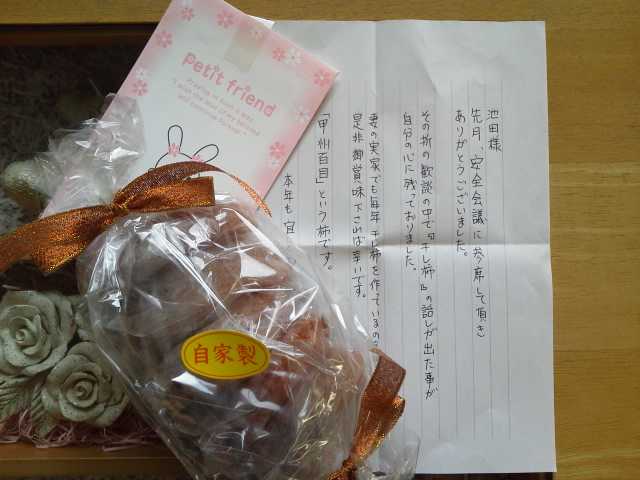 池田様
先月、安全会議に参席して頂き
ありがとうございました。
その折の歓談の中で『干し柿』の話しが出た事が
自分の心に残っておりました。
妻の実家でも毎年干し柿を作っているの
是非御賞味下されば幸いです。
「甲州百目」という柿です。
本年も宜
petit friend
自家製